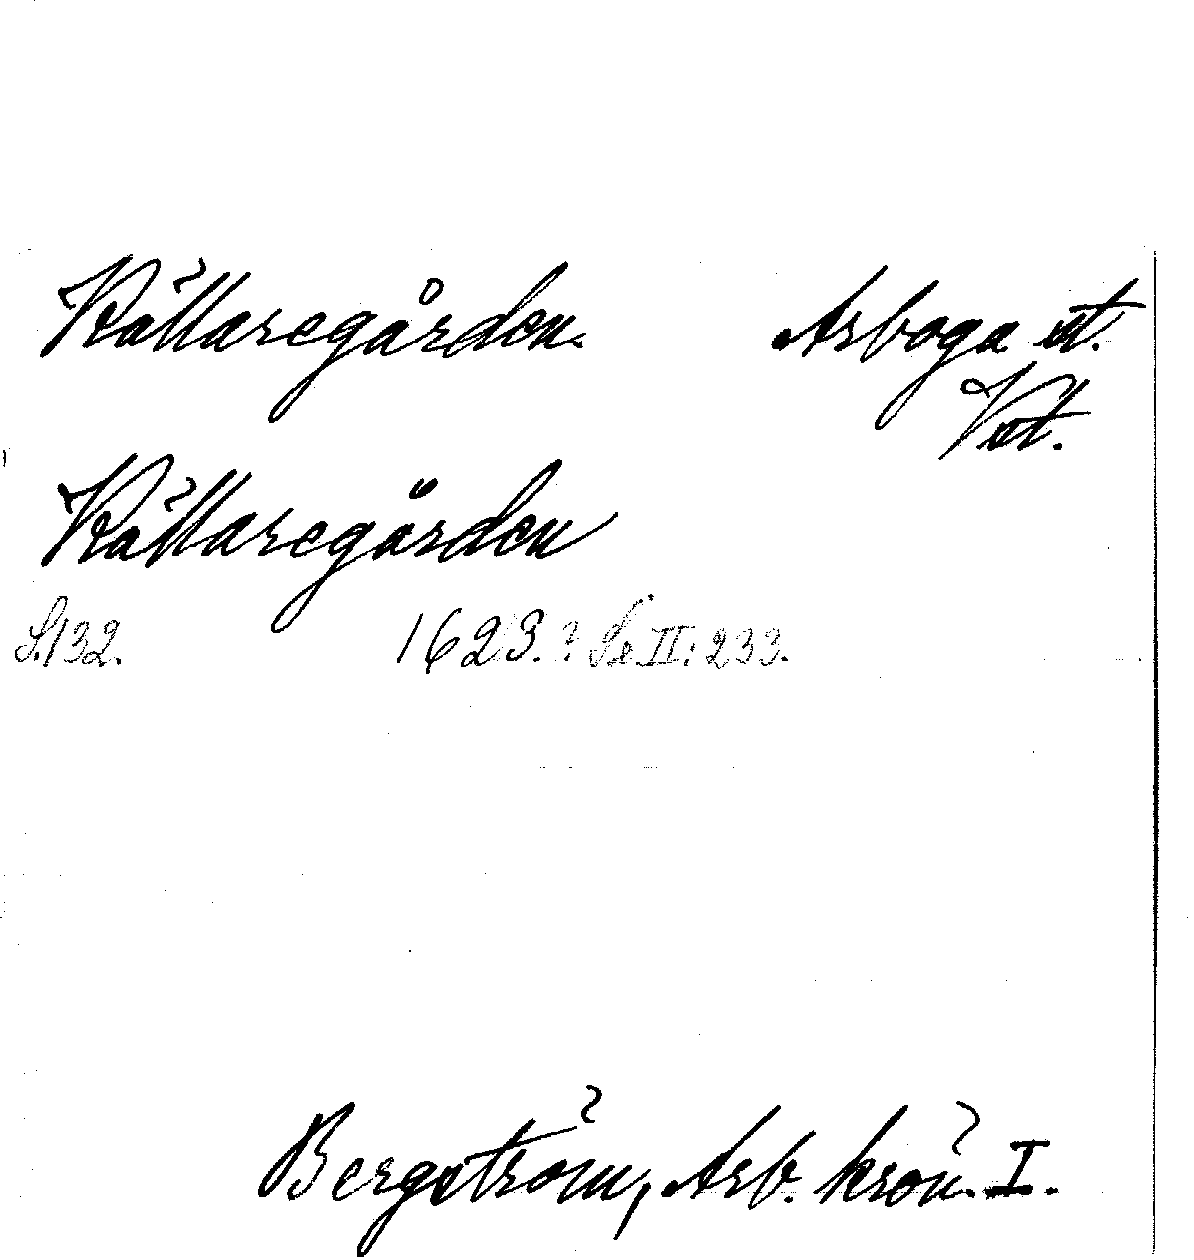 Källaregården. Arboga st.
Vstm.
Källaregården
S. 132. 1623. ? Se II: 233.
Bergström, Arb. krön. I.